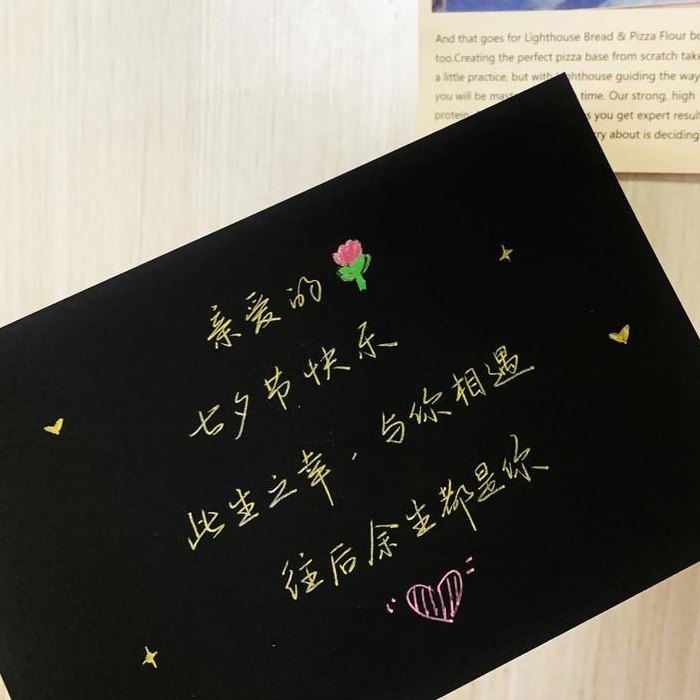 And that goes for Lighthouse Bread & Pizza Flour
too.Creating the perfect pizza base from scratch
a little practice, but with guiding the way
you will be time. Our strong, high
you get expert
about is deciding
亲爱的
七夕节快乐
此生之幸,与你相遇
往后余生都是你